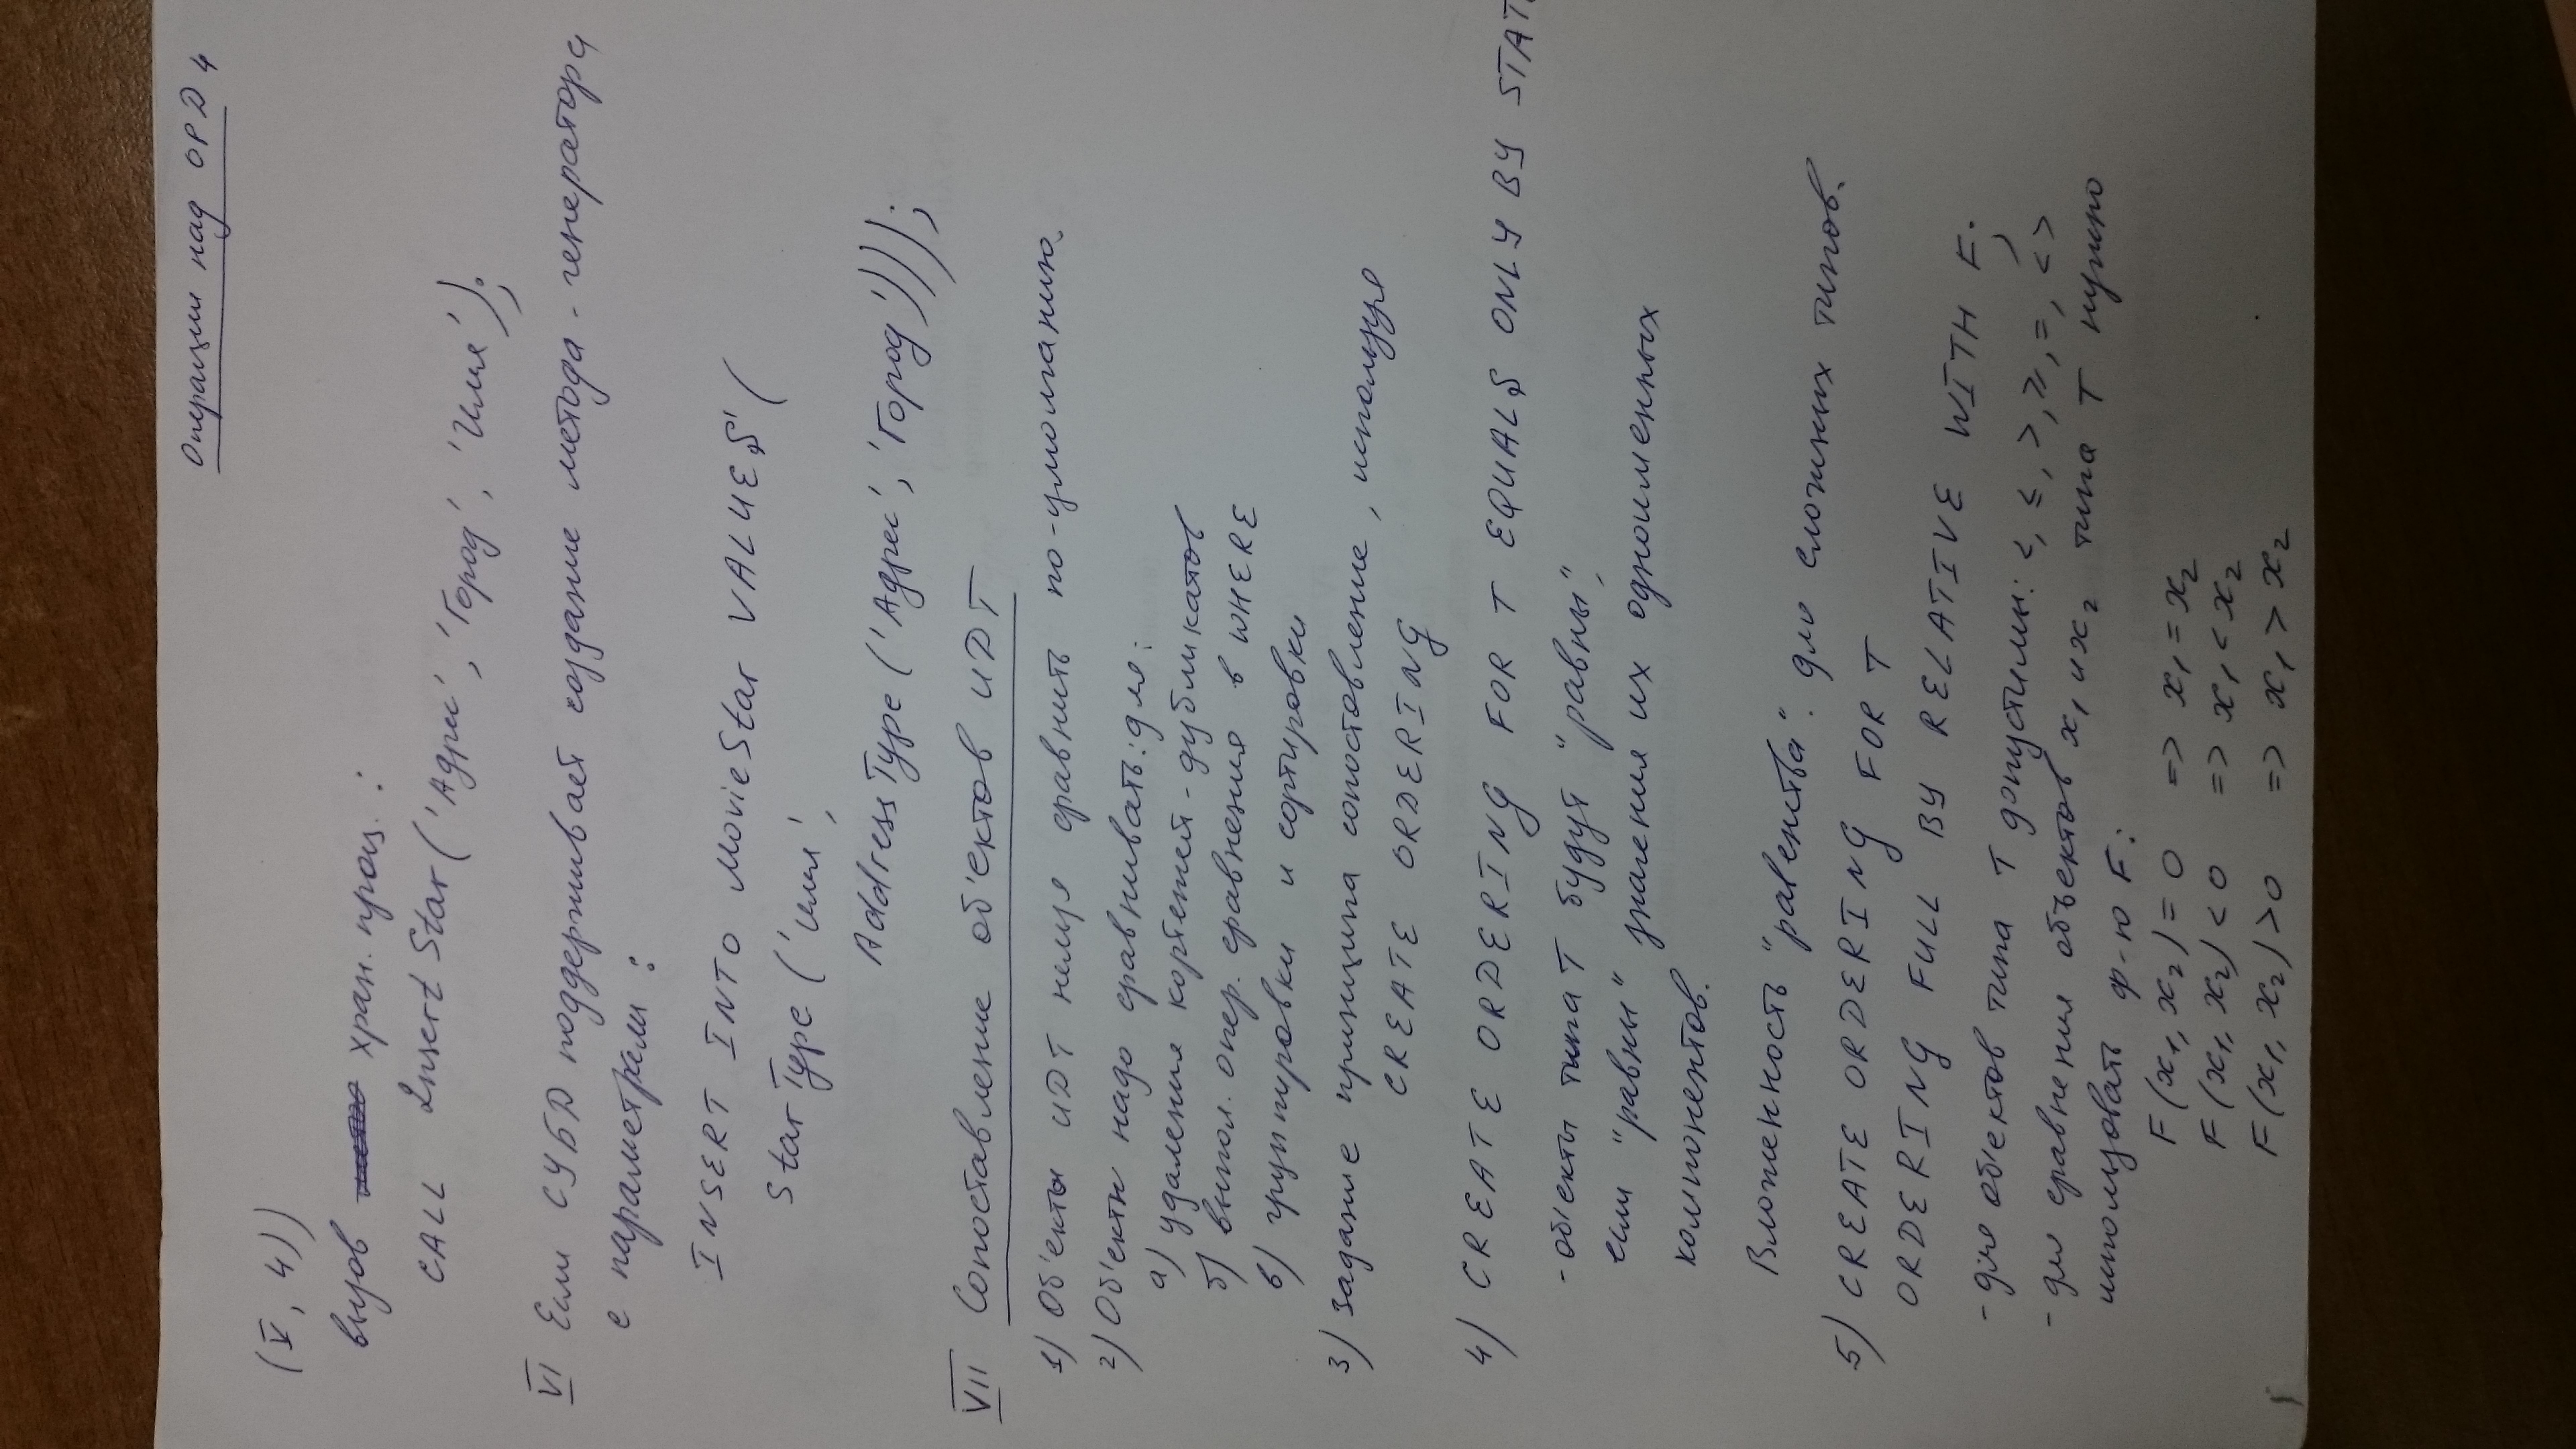 Операции над ОРД 4
(V, 4))
вызов хран. проц. :
CALL InsertStar('Адрес', 'Город', 'Имя');
VI Если СУБД поддерживает создание метода-генератора
с параметрами :
INSERT INTO MovieStar VALUES (
StarType ('имя',
AddressType ('Адрес', 'Город')));
VII Сопоставление об'ектов UDT
1) Об'екты UDT нельзя сравнить по-умолчанию.
2) Об'екты надо сравнивать: для:
а) удаления кортежей-дубликатов
б) выпол. опер. сравнения в WHERE
в) группировки и сортировки
3) Задание принципа сопоставление, используя
CREATE ORDERING
4) CREATE ORDERING FOR T EQUALS ONLY BY STAT
- об'екты типа T будут "равны",
если "равны" значения их одноименных
компонентов.
Вложенность "равенства". для сложных типов.
5) CREATE ORDERING FOR T
ORDERING FULL BY RELATIVE WITH F;
- для об'ектов типа T допустимы: <, ≤, >, ≥, =, <>
- для сравнения объектов x₁ и x₂ типа T нужно
использовать ф-ю F:
F(x₁, x₂) = 0 => x₁ = x₂
F(x₁, x₂) < 0 => x₁ < x₂
F(x₁, x₂) > 0 => x₁ > x₂